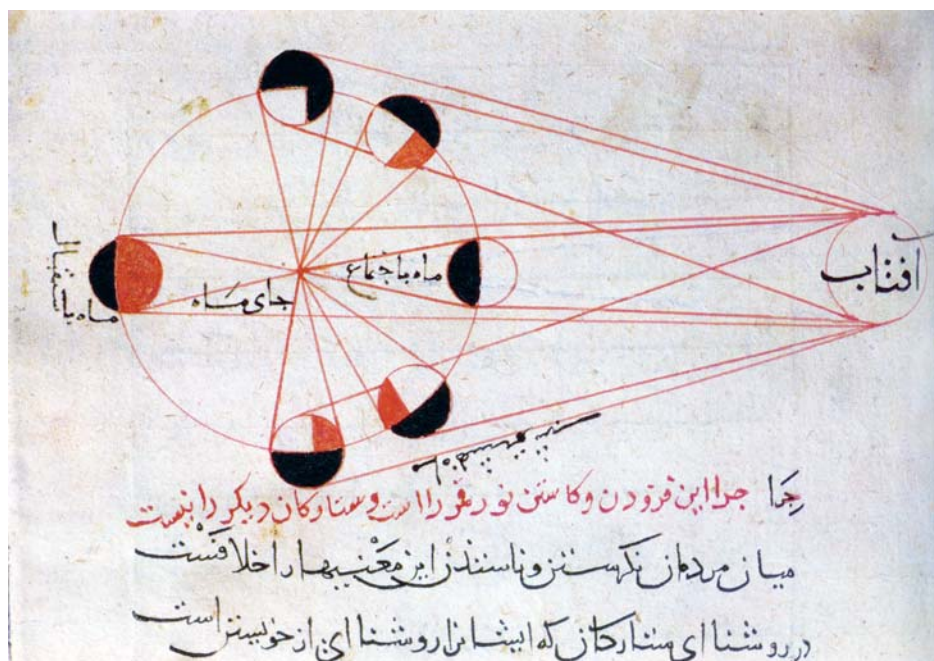 آفتاب
ماه باجتماع
جای ماه
ماه باستقبال
چرا این فزودن و کاستن نور قمر را است و ستارکان دیکر را نیست
میان مردمان نکرستن و ناسنذن این معنیها را خلافست
در روشنا ای ستارکان که ایشانرا روشنا ای از خویشتن است